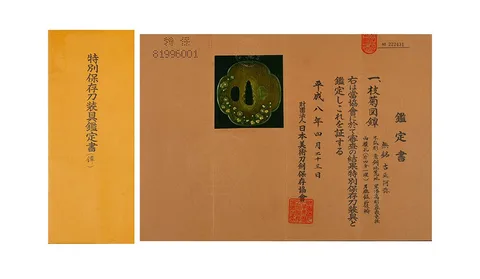 特別保存刀装具鑑定書
特保
81996001
鑑定書
一、枝菊図鐔
無銘 古正阿弥
右は當協會に於て審査の結果特別保存刀装具と
鑑定しこれを証する
平成八年四月二十三日
財団法人日本美術刀剣保存協會